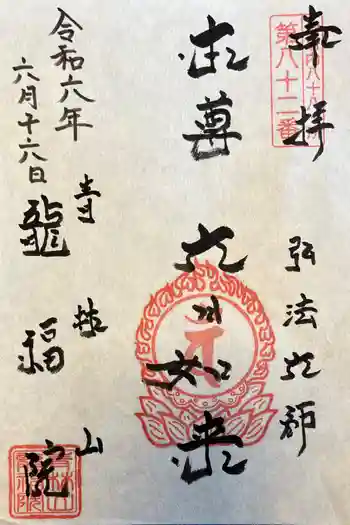 奉拝
第八十二番
弘法大師
本尊
大日如来
青林山
龍福院
令和六年
六月十六日